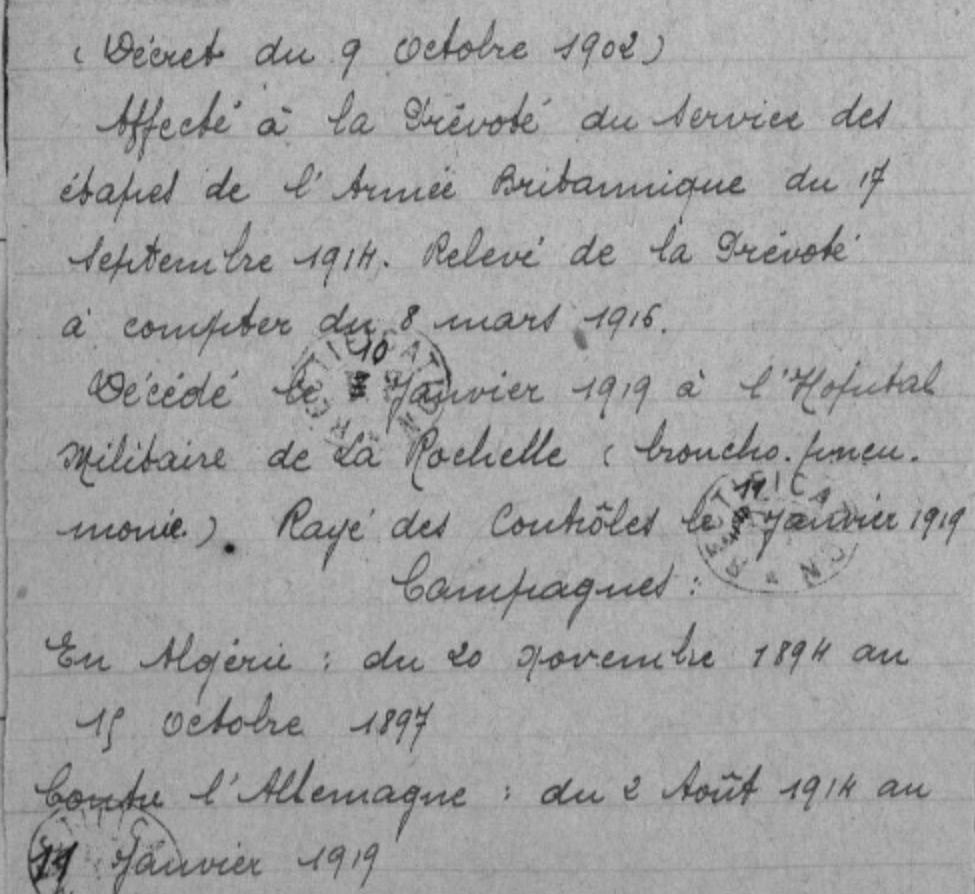 (Décret du 9 Octobre 1902)
Affecté à la Prévoté du Service des
étapes de l'Armée Britannique du 17
Septembre 1914. Relevé de la Prévoté
à compter du 8 mars 1916.
Décédé le 10 Janvier 1919 à l'Hopital
Militaire de La Rochelle (broncho.pneu.
monie). Rayé des Contrôles le 11 Janvier 1919
Campagnes :
En Algérie : du 20 Novembre 1894 au
15 Octobre 1897
Contre l'Allemagne : du 2 Août 1914 au
11 Janvier 1919